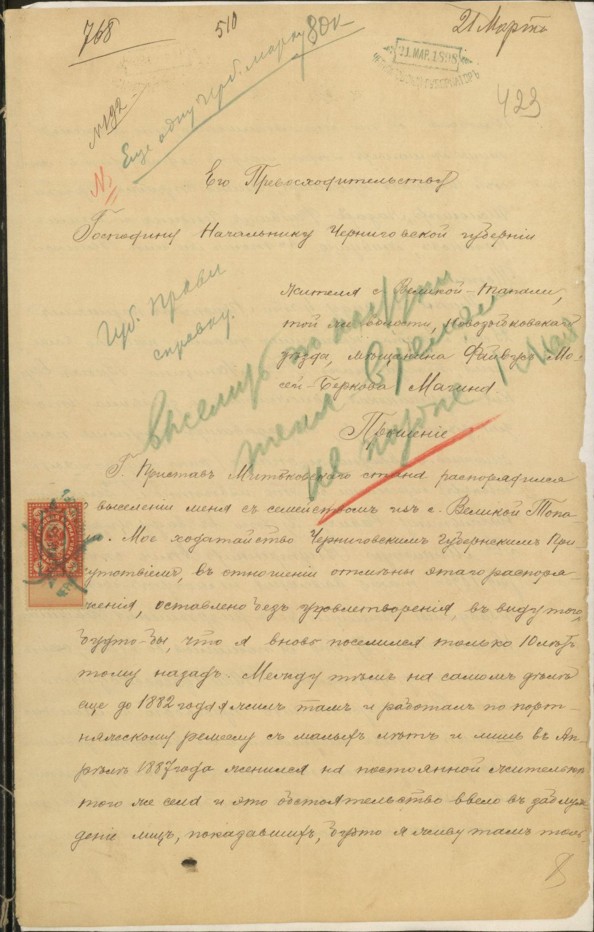 768
510
21 Мартъ
21. МАР. 1898
423
№ 192
Еще одну герб. марку 80 к
Его Превосходительству
Господину Начальнику Черниговской губерніи
Губ. Правл
справку.
Жителя с. Великой-Топали,
той же области, Новозыбковскаго
уѣзда, мѣщанина Мо
сей-Беркова Магина.
Прошеніе
Г. Приставъ Митьковскаго стана распорядился
о выселеніи меня съ семействомъ изъ с. Великой Топа
. Мое ходатайство Черниговскимъ Губернскимъ При
сутствіемъ, въ отношеніи отмѣны этаго распоря-
женія, оставлено безъ удовлетворенія, въ виду того,
будто-бы, что я вновь поселился только 10 лѣтъ
тому назадъ. Между тѣмъ на самомъ дѣлѣ
еще до 1882 года я жилъ тамъ и работалъ по порт-
няжскому ремеслу съ малыхъ лѣтъ и лишь въ Ап-
рѣлѣ 1887 года женился на постоянной жительни
того же села и это обстоятельство ввело въ заблуж
деніе лицъ, показавшихъ, будто я живу тамъ толь